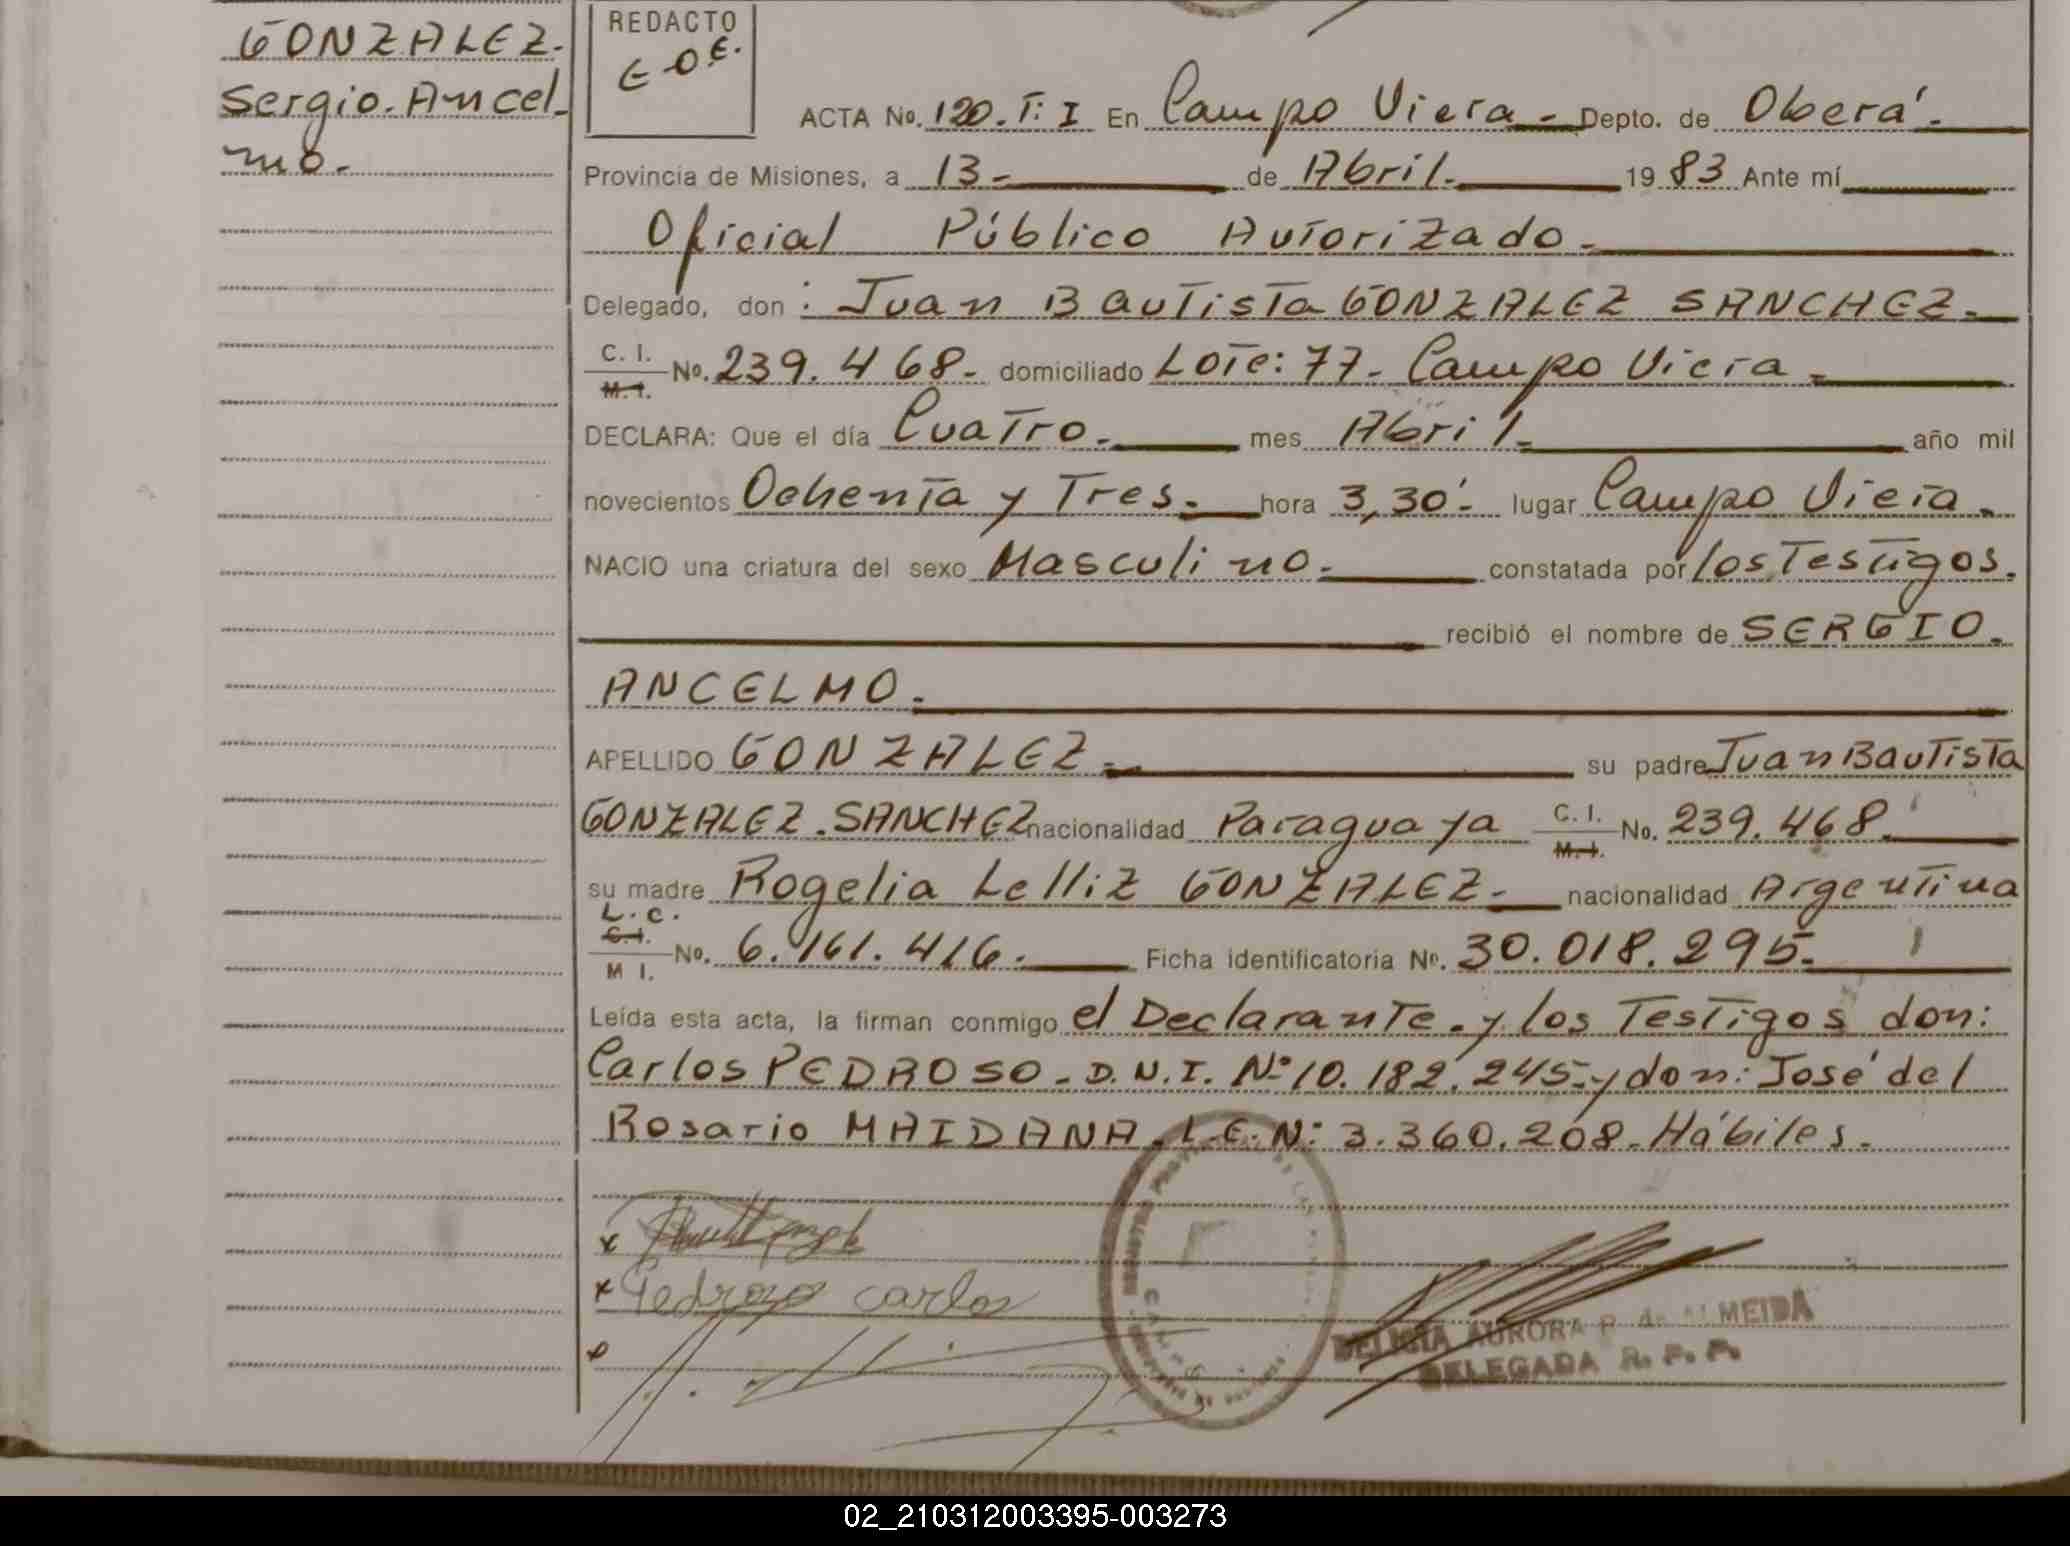 GONZALEZ.
Sergio. Ancel-
mo.-
REDACTO
E.O.E.
ACTA No. 120. T: I En Campo Viera - Depto. de Oberá.-
Provincia de Misiones, a 13 - de Abril. 1983 Ante mí
Oficial Público Autorizado.-
Delegado, don : Juan Bautista GONZALEZ SANCHEZ.-
C. I.
M. I.
No. 239.468.- domiciliado Lote: 77.- Campo Viera.-
DECLARA: Que el día Cuatro.- mes Abril.- año mil
novecientos Ochenta y Tres.- hora 3,30'.- lugar Campo Viera.
NACIO una criatura del sexo Masculino.- constatada por los Testigos.
recibió el nombre de SERGIO.
ANCELMO.-
APELLIDO GONZALEZ.- su padre Juan Bautista
GONZALEZ. SANCHEZ nacionalidad Paraguaya C. I. M. I. No. 239.468.
su madre Rogelia Lelliz GONZALEZ.- nacionalidad Argentina
L. C.
C. I.
M I.
No. 6.161.416.- Ficha identificatoria No. 30.018.295.-
Leída esta acta, la firman conmigo el Declarante. y los Testigos don:
Carlos PEDROSO.- D.N.I. Nº 10.182.245.- y don: José del
Rosario MAIDANA. L.E. Nº 3.360.208.- Hábiles.-
x
x Pedrozo carlos
x
REGISTRO PROVINCIAL DE LAS
DELICIA AURORA P. de ALMEIDA
DELEGADA R. P. P.
02_210312003395-003273